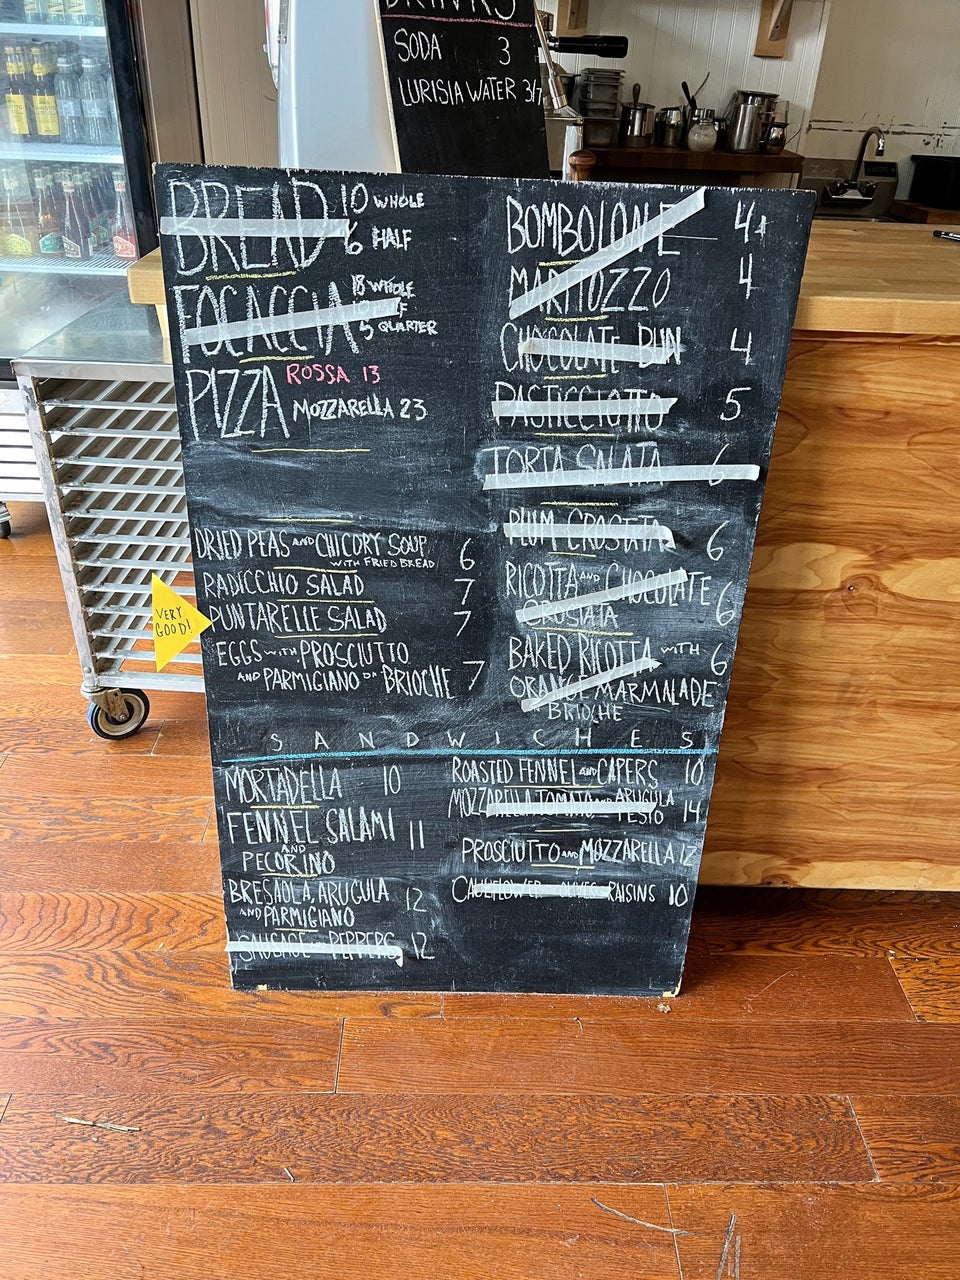 DRINKS
SODA 3
LURISIA WATER 3/7
BREAD 10 WHOLE
6 HALF
FOCACCIA 18 WHOLE
5 QUARTER
PIZZA ROSSA 13
MOZZARELLA 23
DRIED PEAS AND CHICORY SOUP 6
WITH FRIED BREAD
RADICCHIO SALAD 7
VERY GOOD!
PUNTARELLE SALAD 7
EGGS WITH PROSCIUTTO
AND PARMIGIANO ON BRIOCHE 7
BOMBOLONE 4
MARITOZZO 4
CHOCOLATE BUN 4
PASTICCIOTTO 5
TORTA SALATA 6
PLUM CROSTATA 6
RICOTTA AND CHOCOLATE
CROSTATA 6
BAKED RICOTTA WITH 6
ORANGE MARMALADE
BRIOCHE
SANDWICHES
MORTADELLA 10
FENNEL SALAMI
AND 11
PECORINO
BRESAOLA, ARUGULA 12
AND PARMIGIANO
SAUSAGE PEPPERS 12
ROASTED FENNEL AND CAPERS 10
MOZZARELLA TOMATO AND ARUGULA
PESTO 14
PROSCIUTTO AND MOZZARELLA 12
CAULIFLOWER OLIVES RAISINS 10